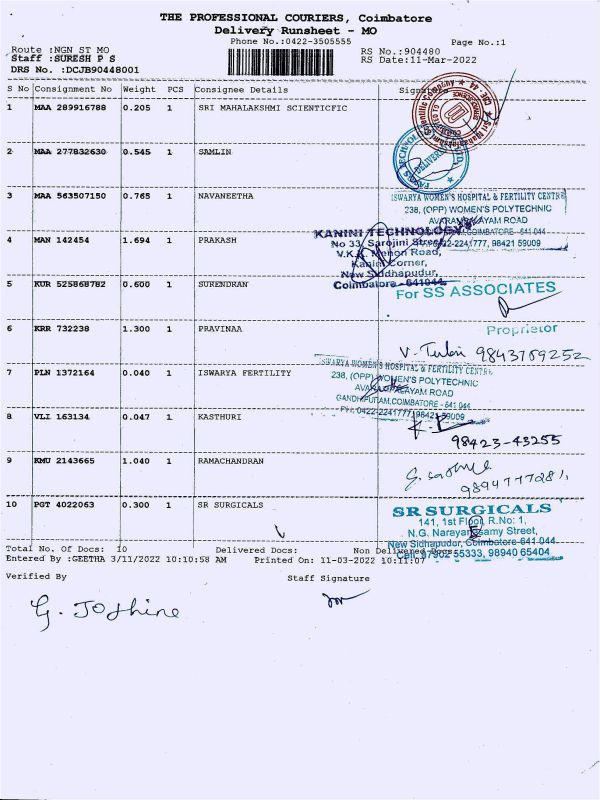 THE PROFESSIONAL COURIERS, Coimbatore
Delivery Runsheet - MO
Phone No.:0422-3505555
Page No.:1
Route :NGN ST MO
RS No.:904480
Staff :SURESH P S
RS Date:11-Mar-2022
DRS No. :DCJB90448001
S No Consignment No Weight PCS Consignee Details Signature
1 MAA 289916788 0.205 1 SRI MAHALAKSHMI SCIENTICFIC
2 MAA 277832630 0.545 1 SAMLIN
DELIVERED
3 MAA 563507150 0.765 1 NAVANEETHA
ISWARYA WOMEN'S HOSPITAL & FERTILITY CENTRE
238, (OPP) WOMEN'S POLYTECHNIC
AVARAMPALAYAM ROAD
COIMBATORE - 641 044
0422-2241777, 98421 59009
4 MAN 142454 1.694 1 PRAKASH
KANINI TECHNOLOGYS
No 33, Sarojini Street,
V.K.K. Menon Road,
Kanini Corner,
New Siddhapudur,
Coimbatore - 641044
5 KUR 525868782 0.600 1 SURENDRAN
For SS ASSOCIATES
Proprietor
6 KRR 732238 1.300 1 PRAVINAA
9843769252
7 PLN 1372164 0.040 1 ISWARYA FERTILITY
ISWARYA WOMEN'S HOSPITAL & FERTILITY CENTRE
238, (OPP) WOMEN'S POLYTECHNIC
AVARAMPALAYAM ROAD
GANDHI PURAM, COIMBATORE - 641 044
PH: 0422-2241777, 98421 59009
8 VLI 163134 0.047 1 KASTHURI
98423-43255
9 KMU 2143665 1.040 1 RAMACHANDRAN
10 PGT 4022063 0.300 1 SR SURGICALS
SR SURGICALS
141, 1st Floor, R.No: 1,
N.G. Narayanasamy Street,
New Sidhapudur, Coimbatore-641 044
Cell: 97902 55333, 98940 65404
Total No. Of Docs: 10 Delivered Docs: Non Delivered Docs:
Entered By :GEETHA 3/11/2022 10:10:58 AM Printed On: 11-03-2022 10:11:07
Verified By Staff Signature
G. Joshine